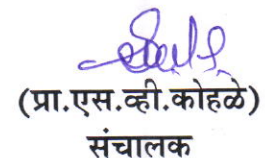 (प्रा.एस.व्ही.कोहळे)
संचालक